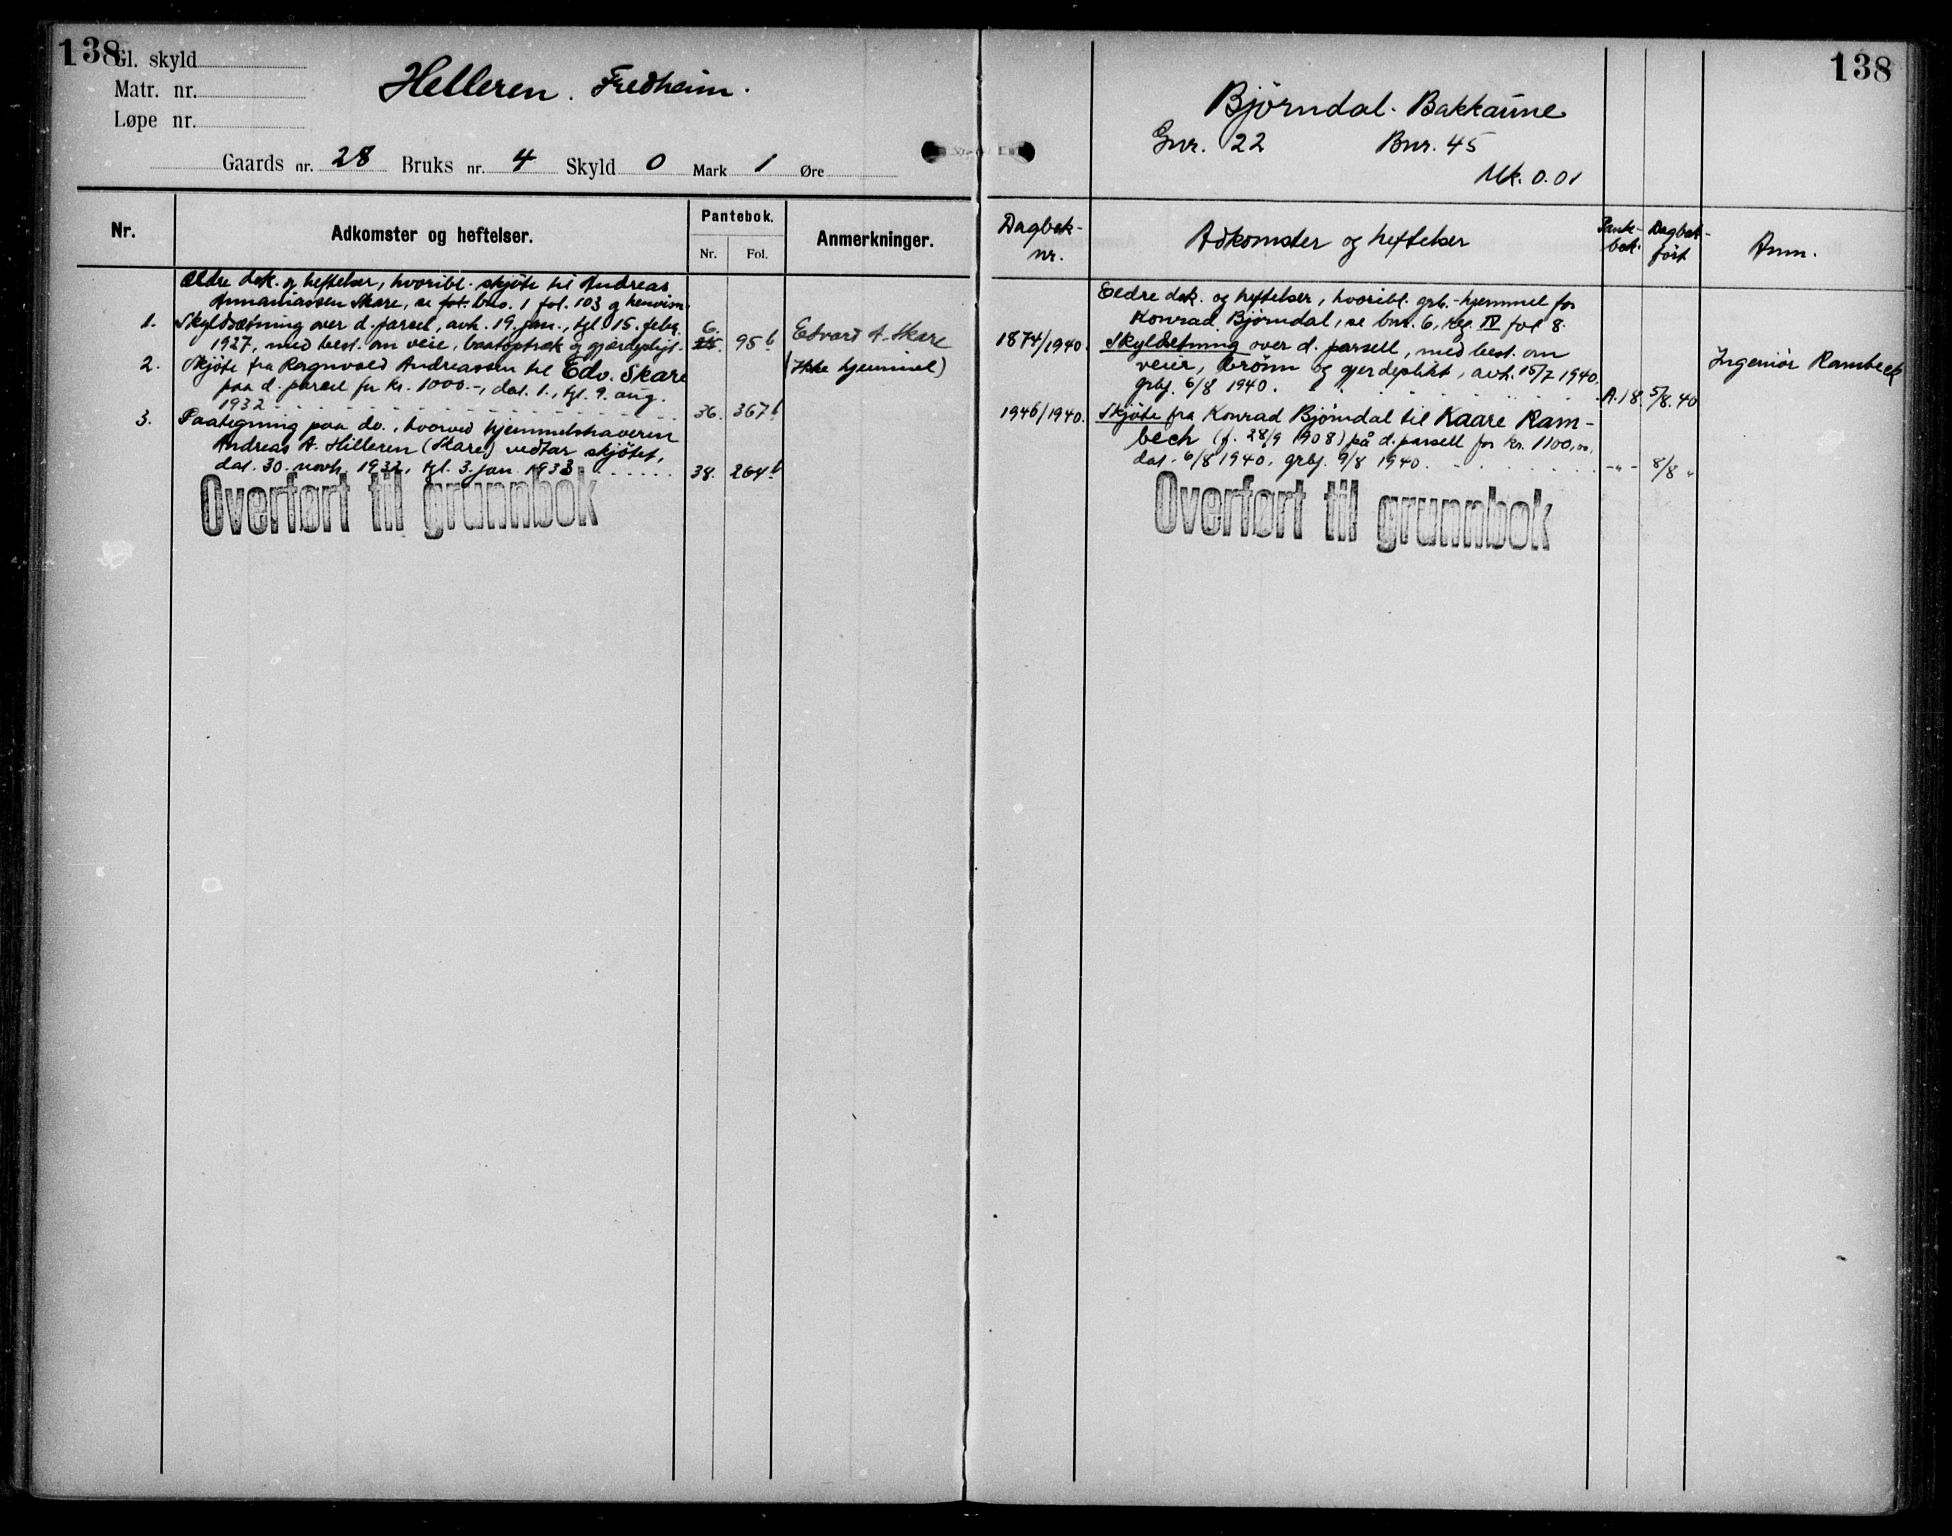 138
Gl. skyld
Matr. nr.
Løpe nr.
Helleren. Fredheim.
Gaards nr. 28 Bruks nr. 4 Skyld 0 Mark 1 Øre
Nr.
Adkomster og heftelser.
Pantebok.
Nr. Fol.
Anmerkninger.
Ældre dok. og heftelser, hvoribl. skjøte til Andreas
Annaniassen Skare, se fol. bno. 1 fol. 103 g henvisn.
1. Skyldsætning over d. parcel, avh. 19. jan., tgl. 15. febr. 6.
1927, med best. om veie, baatoptræk og gjærdepligt. 25. 95b Edvard A. Skare
2. Skjøte fra Ragnvald Andreassen til Edv. Skare (Ikke hjemmel)
paa d. parcel for kr. 1000.-, dat. 1., tgl. 9. aug.
1932 36. 367b
3. Paategning paa do., hvorved hjemmelshaveren
Andreas A. Hilleren (Skare) vedtar skjøtet,
dat. 30. novb. 1932, tgl. 3. jan. 1933. 38. 264b
Overført til grunnbok
138
Bjørndal. Bakkaune
Gnr. 22 Bnr. 45
Mk. 0.01
Dagbok-
nr.
Adkomster og heftelser
Pante-
bok.
Dagbok-
ført
Anm.
Eldre dok. og heftelser, hvoribl. grb.-hjemmel for
Konrad Bjørndal, se bnr. 6, reg. IV fol 8.
1874/1940. Skyldsetning over d. parsell, med best. om
veier, brønn og gjerdeplikt, avh. 15/7 1940. Ingeniør Rambeck
grbf. 6/8 1940. A.18. 5/8.40
1946/1940. Skjøte fra Konrad Bjørndal til Kaare Ram-
bech (f. 28/9 1908) på d. parsell for kr. 1100,-,
dat. 6/8 1940, grbf. 9/8 1940. -"- 8/8 "
Overført til grunnbok